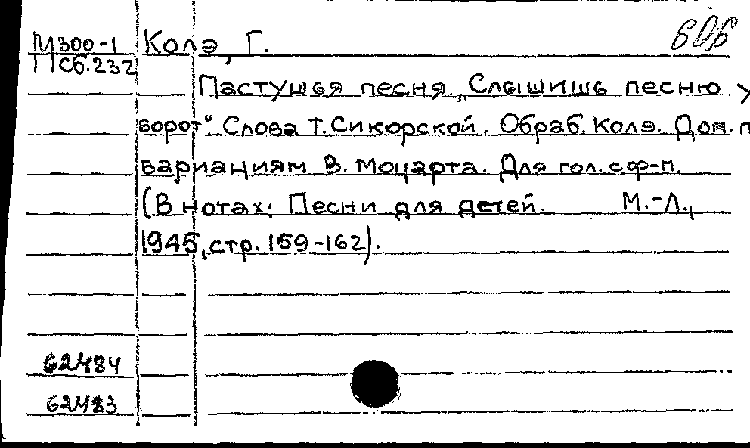 М300-1 Колэ, Г. 606
Сб.232
Пастушья песня „Слышишь песню у
ворот“ Слова Т.Сикорской. Обраб. Колэ. Доп. п
вариациям В. Моцарта. Для гол. с ф-п.
(В нотах: Песни для детей. М.-Л.,
1945, стр. 159-162).
62484
62483